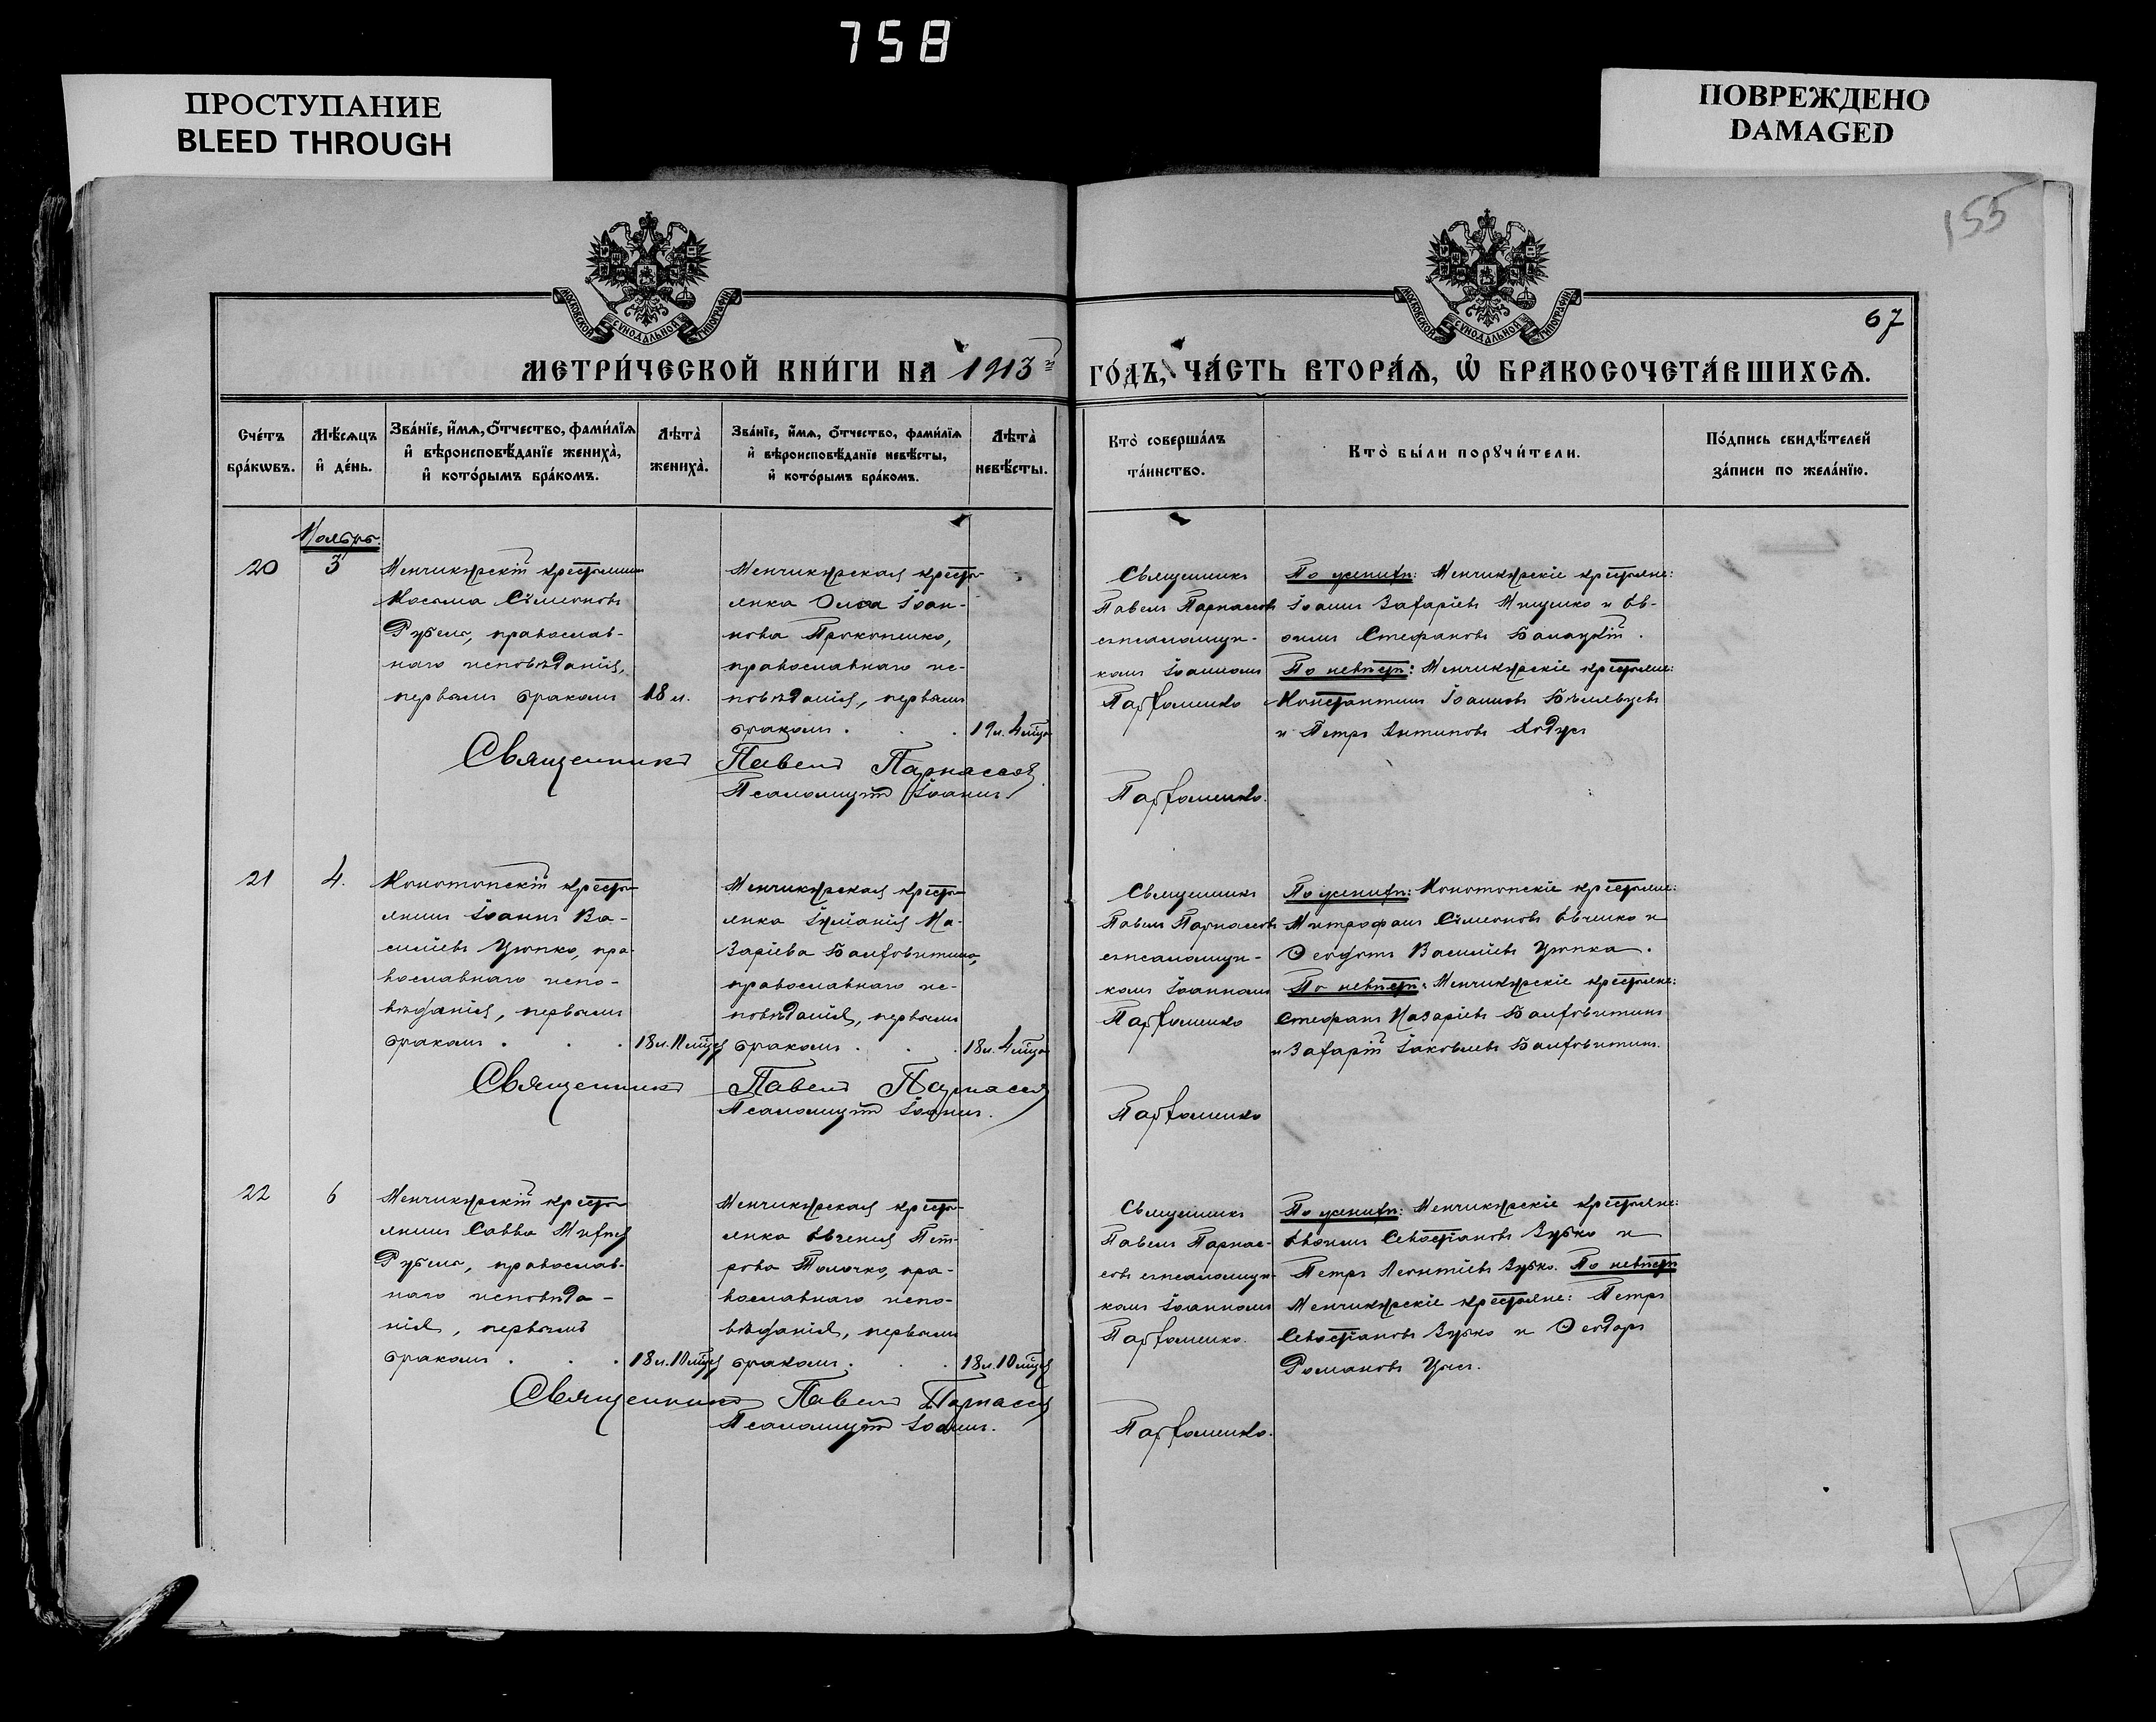 758
ПРОСТУПАНИЕ
BLEED THROUGH
ПОВРЕЖДЕНО
DAMAGED
155
МОСКОВСКОЙ СѴНОДАЛЬНОЙ ТИПОГРАФІИ
МОСКОВСКОЙ СѴНОДАЛЬНОЙ ТИПОГРАФІИ
67
МЕТРИ́ЧЕСКОЙ КНИ́ГИ НА 1913й ГО́ДЪ, ЧА́СТЬ ВТОРА́Ѧ, Ѡ҆ БРАКОСОЧЕТА́ВШИХСѦ.
Сче́тъ
бра́кѡвъ.
Мѣ́сѧцъ
и҆ де́нь.
Зва́нїе, и҆́мѧ, ѻ҆́тчество, фами́лїѧ
и҆ вѣроисповѣ́данїе жениха̀,
и҆ кото́рымъ бра́комъ.
Лѣта̀
жениха̀.
Зва́нїе, и҆́мѧ, ѻ҆́тчество, фами́лїѧ
и҆ вѣроисповѣ́данїе невѣ́сты,
и҆ кото́рымъ бра́комъ.
Лѣта̀
невѣ́сты.
Кто̀ соверша́лъ
та́инство.
Кто̀ бы́ли порꙋчи́тели.
По́дпись свидѣ́телей
за́писи по жела́нїю.
Ноябрь.
20
3
Менчикурскій крестьянинъ
Косьма Сѵмеоновъ
Рубель, православ-
наго исповѣданія,
первымъ бракомъ
18 л.
Менчикурская кресть-
янка Ольга Іоан-
нова Прокопенко,
православнаго ис-
повѣданія, первымъ
бракомъ . . .
19 л. 4 мѣца
Священникъ
Павелъ Парнассовъ
съ псаломщи-
комъ Іоанномъ
Парфоменко
По женихѣ: Менчикурскіе крестьяне:
Іоаннъ Захаріевъ Мищенко и Ев-
Стефановъ
По невѣстѣ: Менчикурскіе крестьяне:
Константинъ Іоанновъ
и Петръ Антиповъ Ходусъ
Священникъ Павелъ Парнассовъ
Псаломщикъ Іоаннъ Парфоменко.
21
4.
Конотопскій кресть-
янинъ Іоаннъ Ва-
силіевъ Цюпко, пра-
вославнаго испо-
вѣданія, первымъ
бракомъ . . .
18 л. 11 мѣцъ
Менчикурская кресть-
янка Іуліанія На-
заріева Балховитина,
православнаго ис-
повѣданія, первымъ
бракомъ . . .
18 л. 4 мѣца
Священникъ
Павелъ Парнассовъ
съ псаломщи-
комъ Іоанномъ
Парфоменко
По женихѣ: Конотопскіе крестьяне:
Митрофанъ Сѵмеоновъ Евченко и
Ѳеодотъ Василіевъ Цюпка.
По невѣстѣ: Менчикурскіе крестьяне:
Стефанъ Назаріевъ Балховитинъ
и Захарій Іаковлевъ Балховитинъ.
Священникъ Павелъ Парнассовъ
Псаломщикъ Іоаннъ. Парфоменко
22
6
Менчикурскій кресть-
янинъ Савва
Рубель, православ-
наго исповѣда-
нія, первымъ
бракомъ . . .
18 л. 10 мѣцъ
Менчикурская кресть-
янка Евгенія Пет-
рова Толочко, пра-
вославнаго испо-
вѣданія, первымъ
бракомъ . . .
18 л. 10 мѣцъ
Священникъ
Павелъ Парнас-
совъ съ псаломщи-
комъ Іоанномъ
Парфоменко.
По женихѣ: Менчикурскіе крестьяне:
Севастіановъ Зубко и
Петръ Леонтіевъ Зубко. По невѣстѣ
Менчикурскіе крестьяне: Петръ
Севастіановъ Зубко и Ѳеодоръ
Романовъ
Священникъ Павелъ Парнассовъ
Псаломщикъ Іоаннъ. Парфоменко.